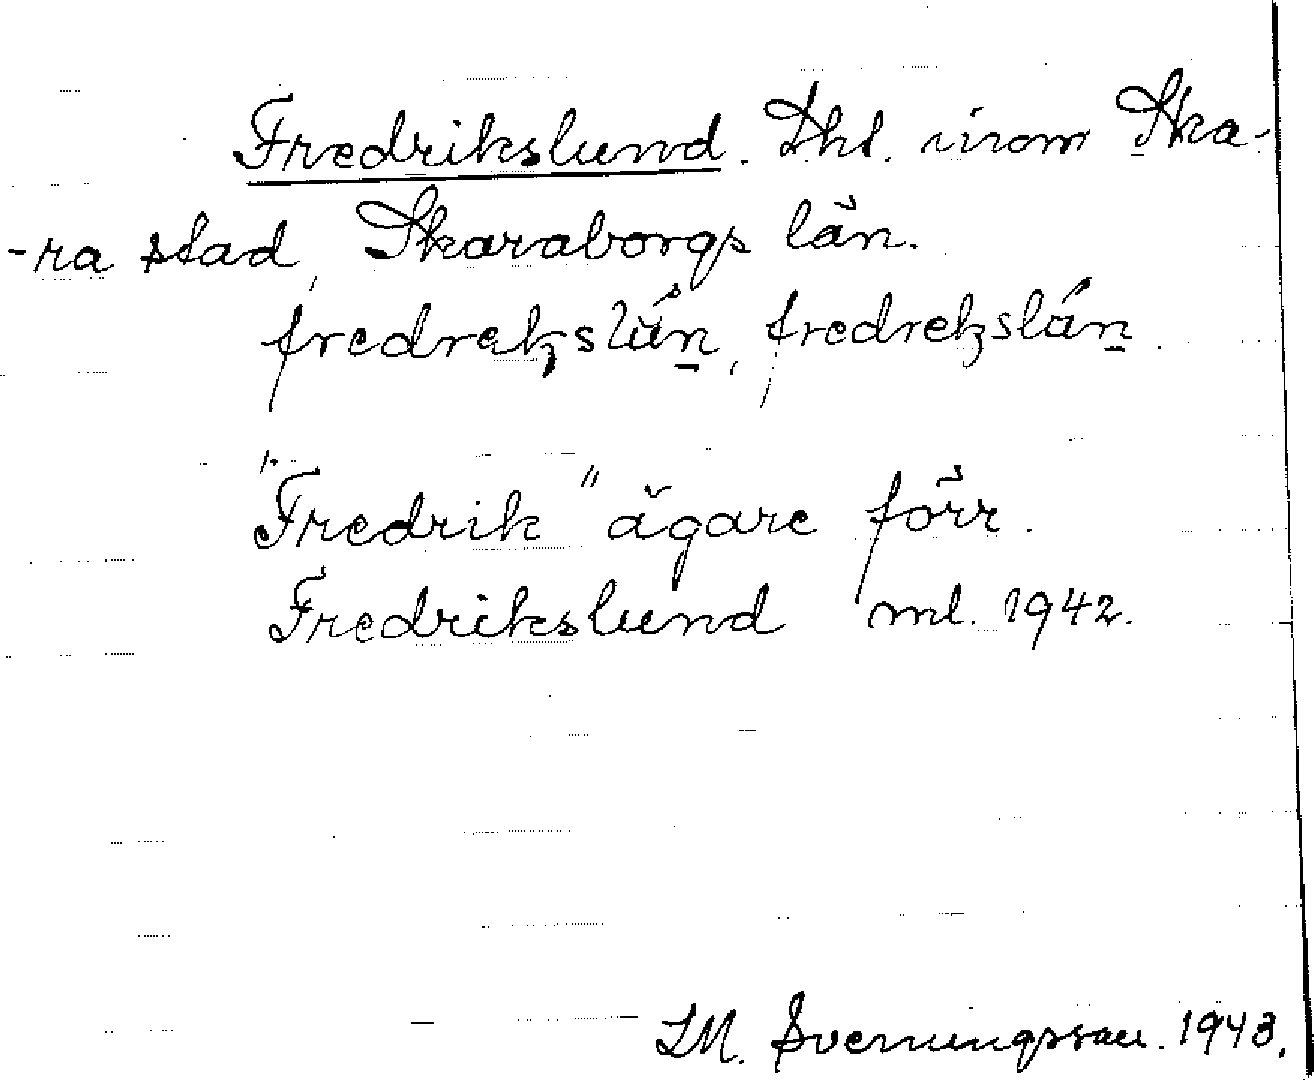 Fredrikslund. Lht. inom Ska-
-ra stad, Skaraborgs län.
fredrekslún, fredrekslán.
"Fredrik" ägare förr.
Fredrikslund ml. 1942.
LM. Svenungsson. 1943.